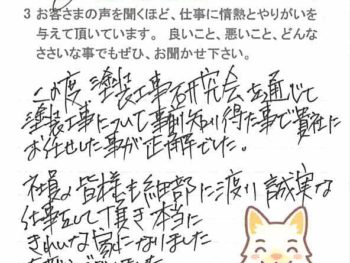 3 お客さまの声を聞くほど、仕事に情熱とやりがいを
与えて頂いています。 良いこと、悪いこと、どんな
ささいな事でもぜひ、お聞かせ下さい。
この度 塗装工事研究会を通じて
塗装工事について事前知り得た事で貴社に
お任せした事が正解でした。
社員の皆様も細部に渡り誠実な
仕事をして頂き本当に
きれいな家になりました